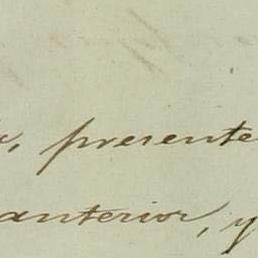 , presente
anterior, y